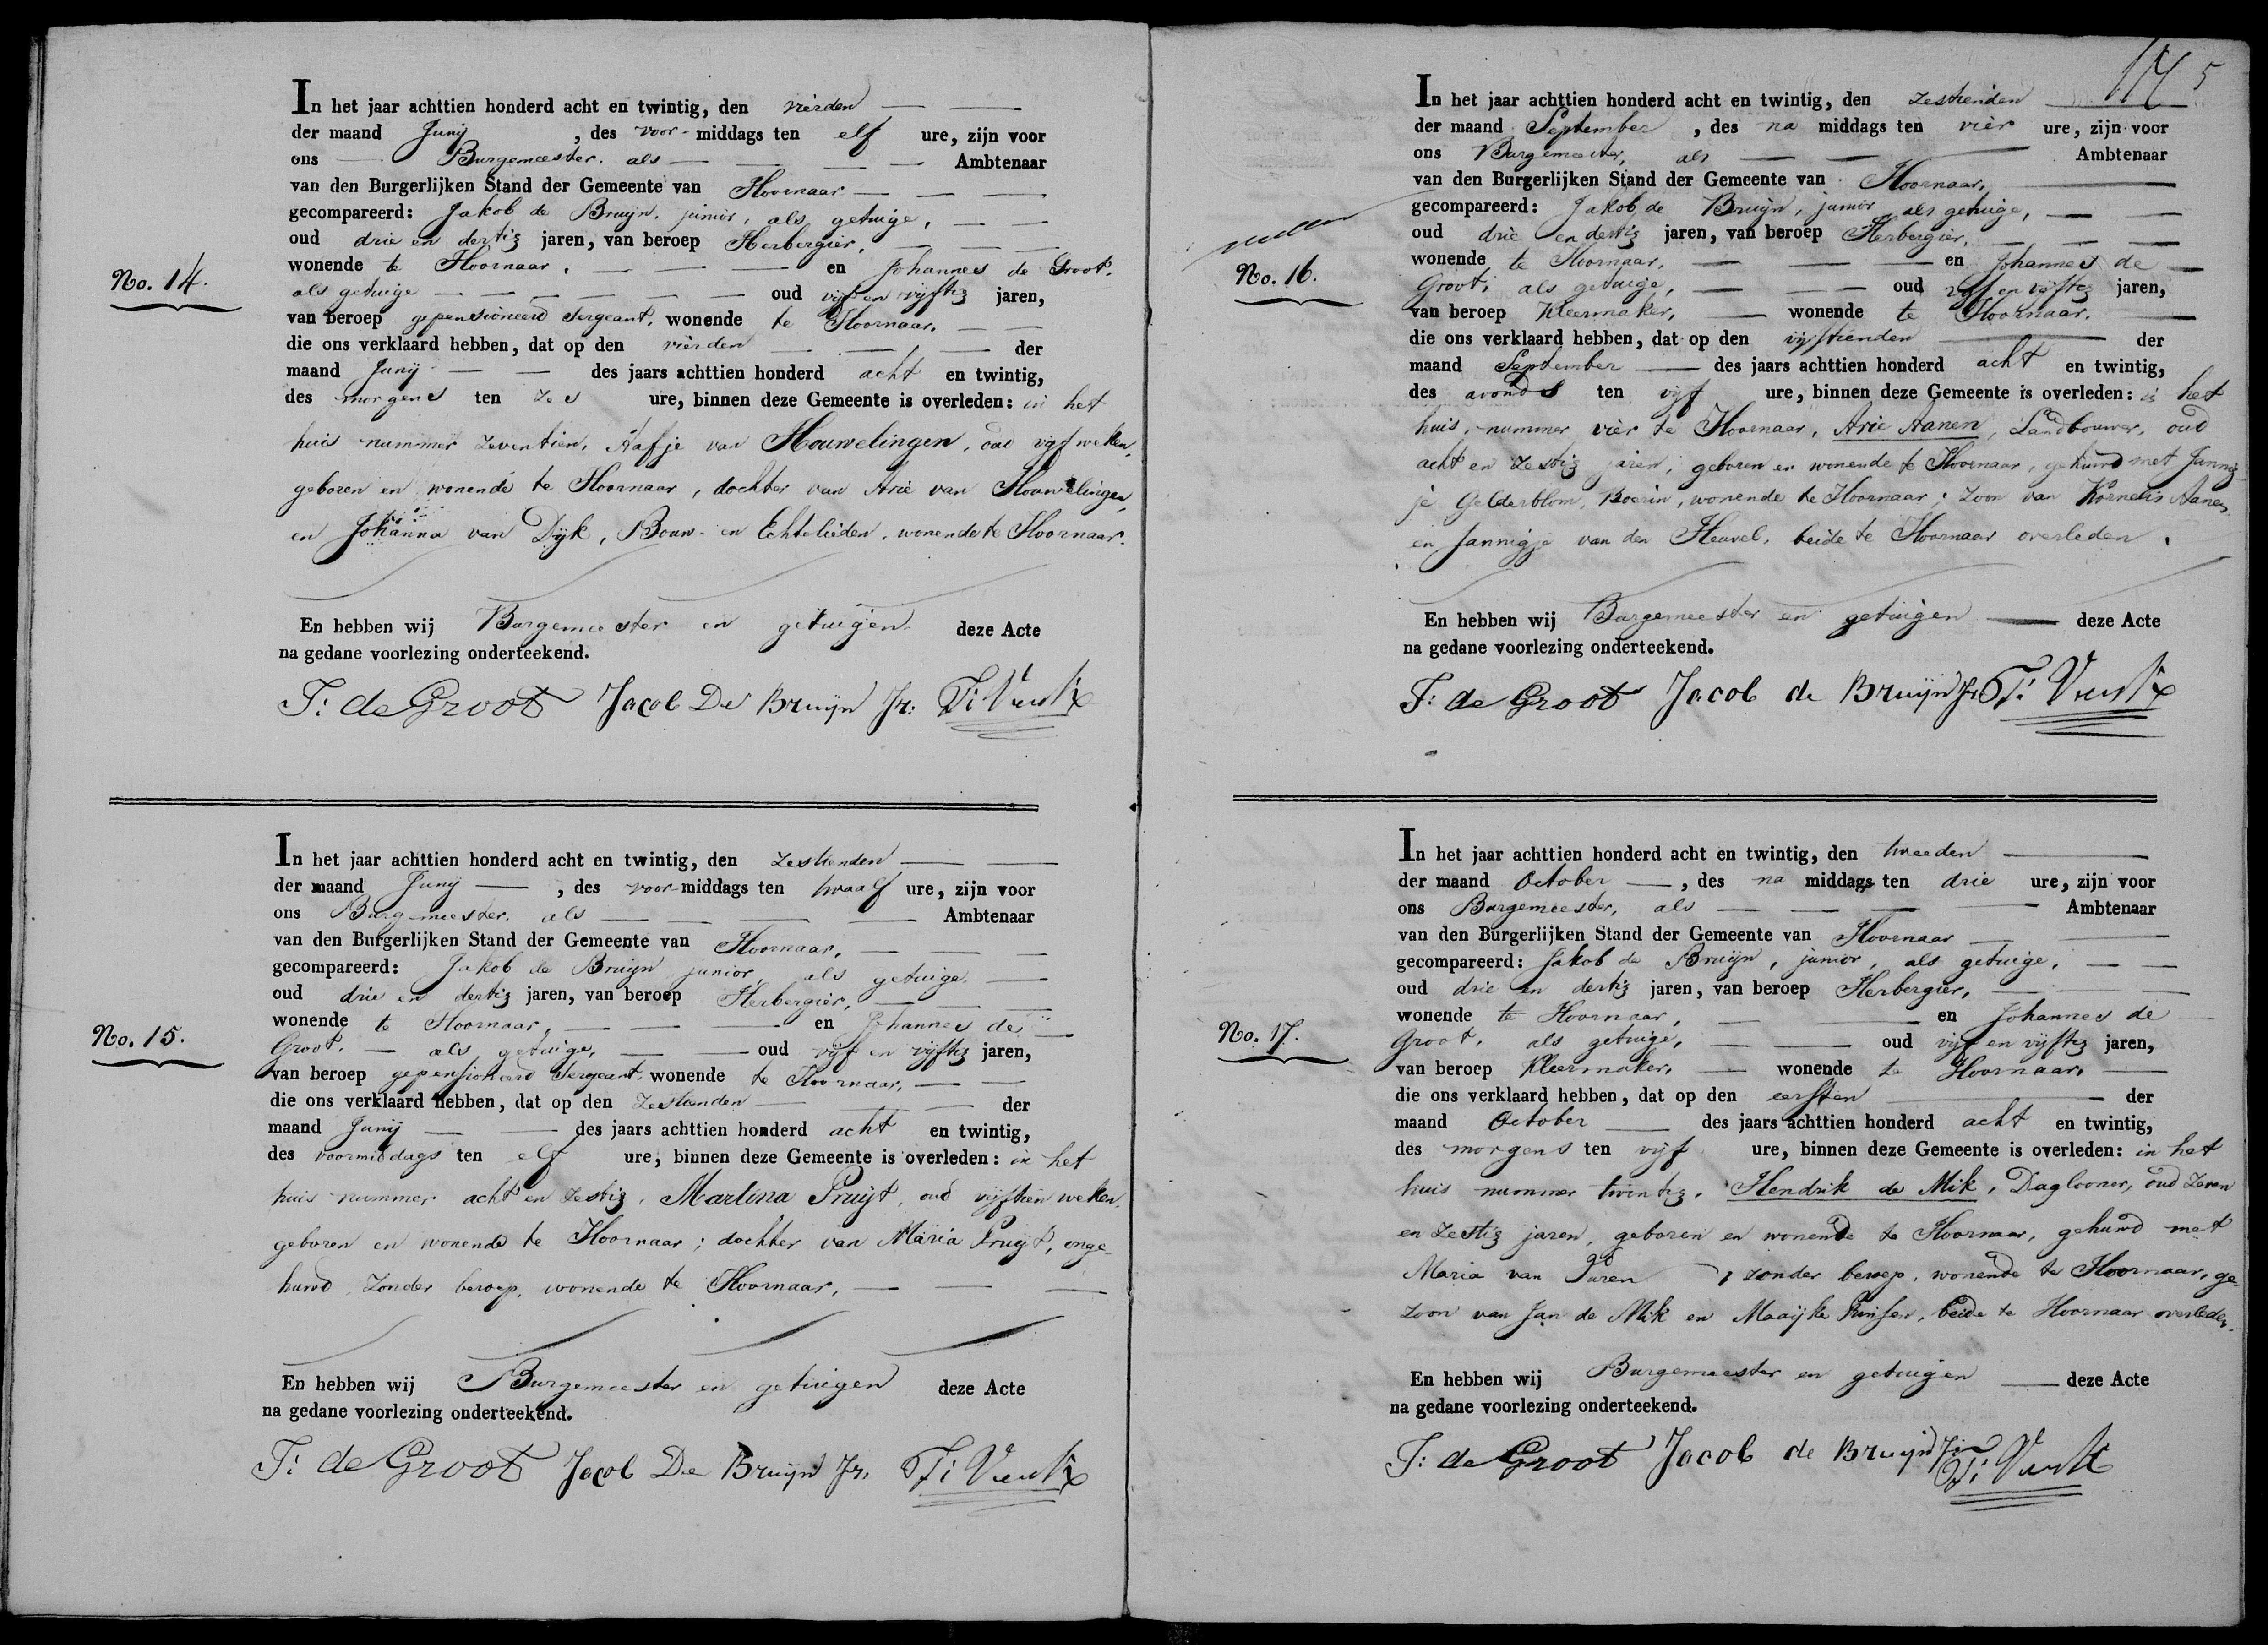 In het jaar achttien honderd acht en twintig, den vierden
der maand Junij, des voor-middags ten elf ure, zijn voor
ons Burgemeester. als Ambtenaar
van den Burgerlijken Stand der Gemeente van Hoornaar
gecompareerd: Jakob de Bruijn, junior, als getuige,
oud drie en dertig jaren, van beroep Herbergier,
wonende te Hoornaar, en Johannes de Groot,
No. 14.
als getuige oud vijf en vijftig jaren,
van beroep gepensioneerd Sergeant, wonende te Hoornaar,
die ons verklaard hebben, dat op den vierden der
maand Junij des jaars achttien honderd acht en twintig,
des morgens ten zes ure, binnen deze Gemeente is overleden: in het
huis nummer zeventien, Aafje van Houwelingen, oud vijf weken,
geboren en wonende te Hoornaar, dochter van Arie van Houwelingen,
en Johanna van Dijk, Bouw- en Echtelieden, wonende te Hoornaar.
En hebben wij Burgemeester en getuigen deze Acte
na gedane voorlezing onderteekend.
J: de Groot Jacob De Bruijn Jr:
In het jaar achttien honderd acht en twintig, den zestienden
der maand Junij, des voor-middags ten twaalf ure, zijn voor
ons Burgemeester, als Ambtenaar
van den Burgerlijken Stand der Gemeente van Hoornaar,
gecompareerd: Jakob de Bruijn junior, als getuige.
oud drie en dertig jaren, van beroep Herbergier,
wonende te Hoornaar, en Johannes de
No. 15.
Groot, als getuige, oud vijf en vijftig jaren,
van beroep gepensioneerd Sergeant, wonende te Hoornaar,
die ons verklaard hebben, dat op den zestienden der
maand Junij des jaars achttien honderd acht en twintig,
des voormiddags ten elf ure, binnen deze Gemeente is overleden: in het
huis nummer acht en zestig, Martina Pruijt, oud vijftien weken,
geboren en wonende te Hoornaar; dochter van Maria Pruijt, onge-
huwd, zonder beroep, wonende te Hoornaar,
En hebben wij Burgemeester en getuigen deze Acte
na gedane voorlezing onderteekend.
J: de Groot Jacob De Bruijn Jr.
5
In het jaar achttien honderd acht en twintig, den zestienden
der maand September, des na middags ten vier ure, zijn voor
ons Burgemeester, als Ambtenaar
van den Burgerlijken Stand der Gemeente van Hoornaar,
gecompareerd: Jakob de Bruijn, junior als getuige,
oud drie en dertig jaren, van beroep Herbergier,
wonende te Hoornaar, en Johannes de
No. 16.
Groot, als getuige, oud vijf en vijftig jaren,
van beroep Kleermaker, wonende te Hoornaar.
die ons verklaard hebben, dat op den vijftienden der
maand September des jaars achttien honderd acht en twintig,
des avonds ten vijf ure, binnen deze Gemeente is overleden: in het
huis, nummer vier te Hoornaar, Arie Aanen, Landbouwer, oud
acht en zestig jaren, geboren en wonende te Hoornaar, gehuwd met Jannig-
je Gelderblom, Boerin, wonende te Hoornaar; zoon van Kornelis Aanen
en Jannigje van den Heuvel, beide te Hoornaar overleden.
En hebben wij Burgemeester en getuigen deze Acte
na gedane voorlezing onderteekend.
J: de Groot Jacob de Bruijn Jr
In het jaar achttien honderd acht en twintig, den tweeden
der maand October, des na middags ten drie ure, zijn voor
ons Burgemeester, als Ambtenaar
van den Burgerlijken Stand der Gemeente van Hoornaar
gecompareerd: Jakob de Bruijn, junior, als getuige,
oud drie en dertig jaren, van beroep Herbergier,
wonende te Hoornaar, en Johannes de
No. 17.
Groot, als getuige, oud vijf en vijftig jaren,
van beroep Kleermaker, wonende te Hoornaar.
die ons verklaard hebben, dat op den eersten der
maand October des jaars achttien honderd acht en twintig,
des morgens ten vijf ure, binnen deze Gemeente is overleden: in het
huis nummer twintig, Hendrik de Mik, Daglooner, oud zeven
en zestig jaren, geboren en wonende te Hoornaar, gehuwd met
Maria van , zonder beroep, wonende te Hoornaar, ge-
zoon van Jan de Mik en Maaijke , beide te Hoornaar overleden.
En hebben wij Burgemeester en getuigen deze Acte
na gedane voorlezing onderteekend.
J: de Groot Jacob de Bruijn Jr